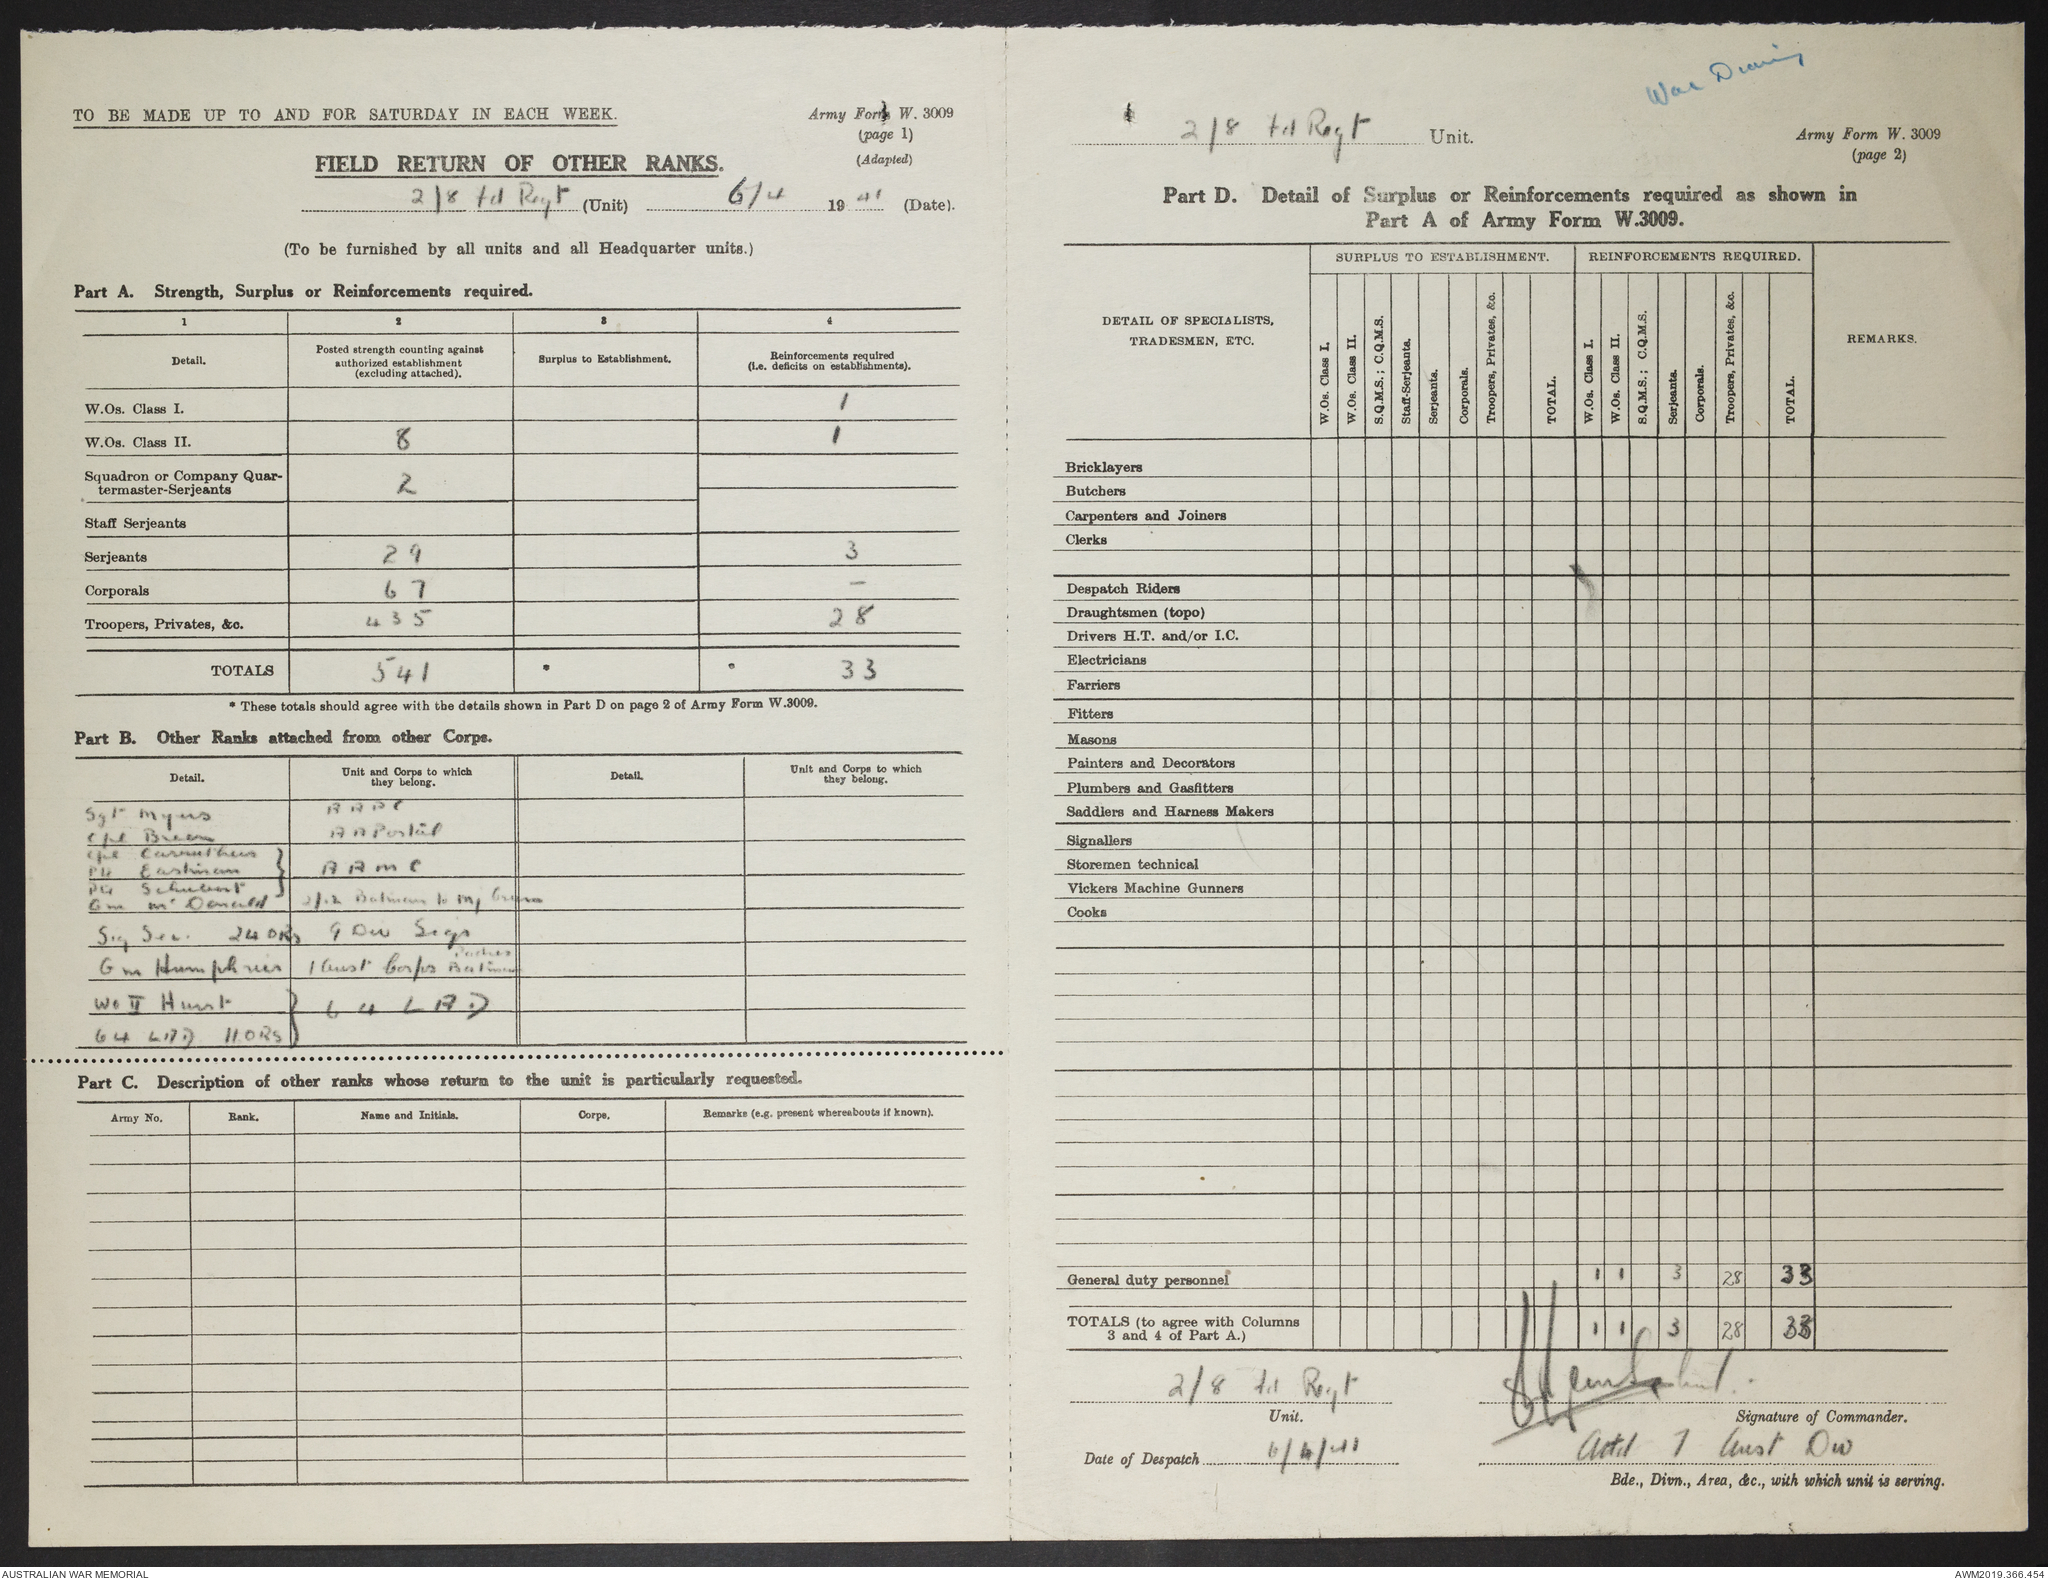 TO BE MADE UP TO AND FOR SATURDAY IN EACH WEEK.
Army Form W. 3009
(page 1)
(Adapted)
FIELD RETURN OF OTHER RANKS.
2/8 Fd Regt (Unit) 6/4 1941 (Date).
(To be furnished by all units and all Headquarter units.)
Part A. Strength, Surplus or Reinforcements required.
1 2 3 4
Detail. Posted strength counting against authorized establishment (excluding attached). Surplus to Establishment. Reinforcements required (i.e. deficits on establishments).
W.Os. Class I. 1
W.Os. Class II. 8 1
Squadron or Company Quar-
termaster-Serjeants 2
Staff Serjeants
Serjeants 29 3
Corporals 67 —
Troopers, Privates, &c. 435 28
TOTALS 541 * * 33
* These totals should agree with the details shown in Part D on page 2 of Army Form W.3009.
Part B. Other Ranks attached from other Corps.
Detail. Unit and Corps to which they belong. Detail. Unit and Corps to which they belong.
Sgt Myers AAPC
Cpl AA Postal
Cpl Carruthers
Pte Eastman AAMC
Pte Schubert
Gnr McDonald 2/12 Batman to Maj
Sig Sec. 24 ORs 9 Div Sigs
Gnr Humphries 1 Aust Corps Batman
WO II Hurst 64 LAD
64 LAD 11 ORs
Part C. Description of other ranks whose return to the unit is particularly requested.
Army No. Rank. Name and Initials. Corps. Remarks (e.g. present whereabouts if known).
War Diary
2/8 Fd Regt Unit.
Army Form W. 3009
(page 2)
Part D. Detail of Surplus or Reinforcements required as shown in
Part A of Army Form W.3009.
SURPLUS TO ESTABLISHMENT. REINFORCEMENTS REQUIRED.
DETAIL OF SPECIALISTS,
TRADESMEN, ETC.
W.Os. Class I.
W.Os. Class II.
S.Q.M.S.; C.Q.M.S.
Staff-Serjeants.
Serjeants.
Corporals.
Troopers, Privates, &c.
TOTAL.
W.Os. Class I.
W.Os. Class II.
S.Q.M.S.; C.Q.M.S.
Serjeants.
Corporals.
Troopers, Privates, &c.
TOTAL.
REMARKS.
Bricklayers
Butchers
Carpenters and Joiners
Clerks
Despatch Riders
Draughtsmen (topo)
Drivers H.T. and/or I.C.
Electricians
Farriers
Fitters
Masons
Painters and Decorators
Plumbers and Gasfitters
Saddlers and Harness Makers
Signallers
Storemen technical
Vickers Machine Gunners
Cooks
General duty personnel 1 1 3 28 33
TOTALS (to agree with Columns
3 and 4 of Part A.) 1 1 3 28 33
2/8 Fd Regt
Unit.
Signature of Commander.
Date of Despatch 6/4/41
Attd 7 Aust Div
Bde., Divn., Area, &c., with which unit is serving.
AUSTRALIAN WAR MEMORIAL
AWM2019.366.454